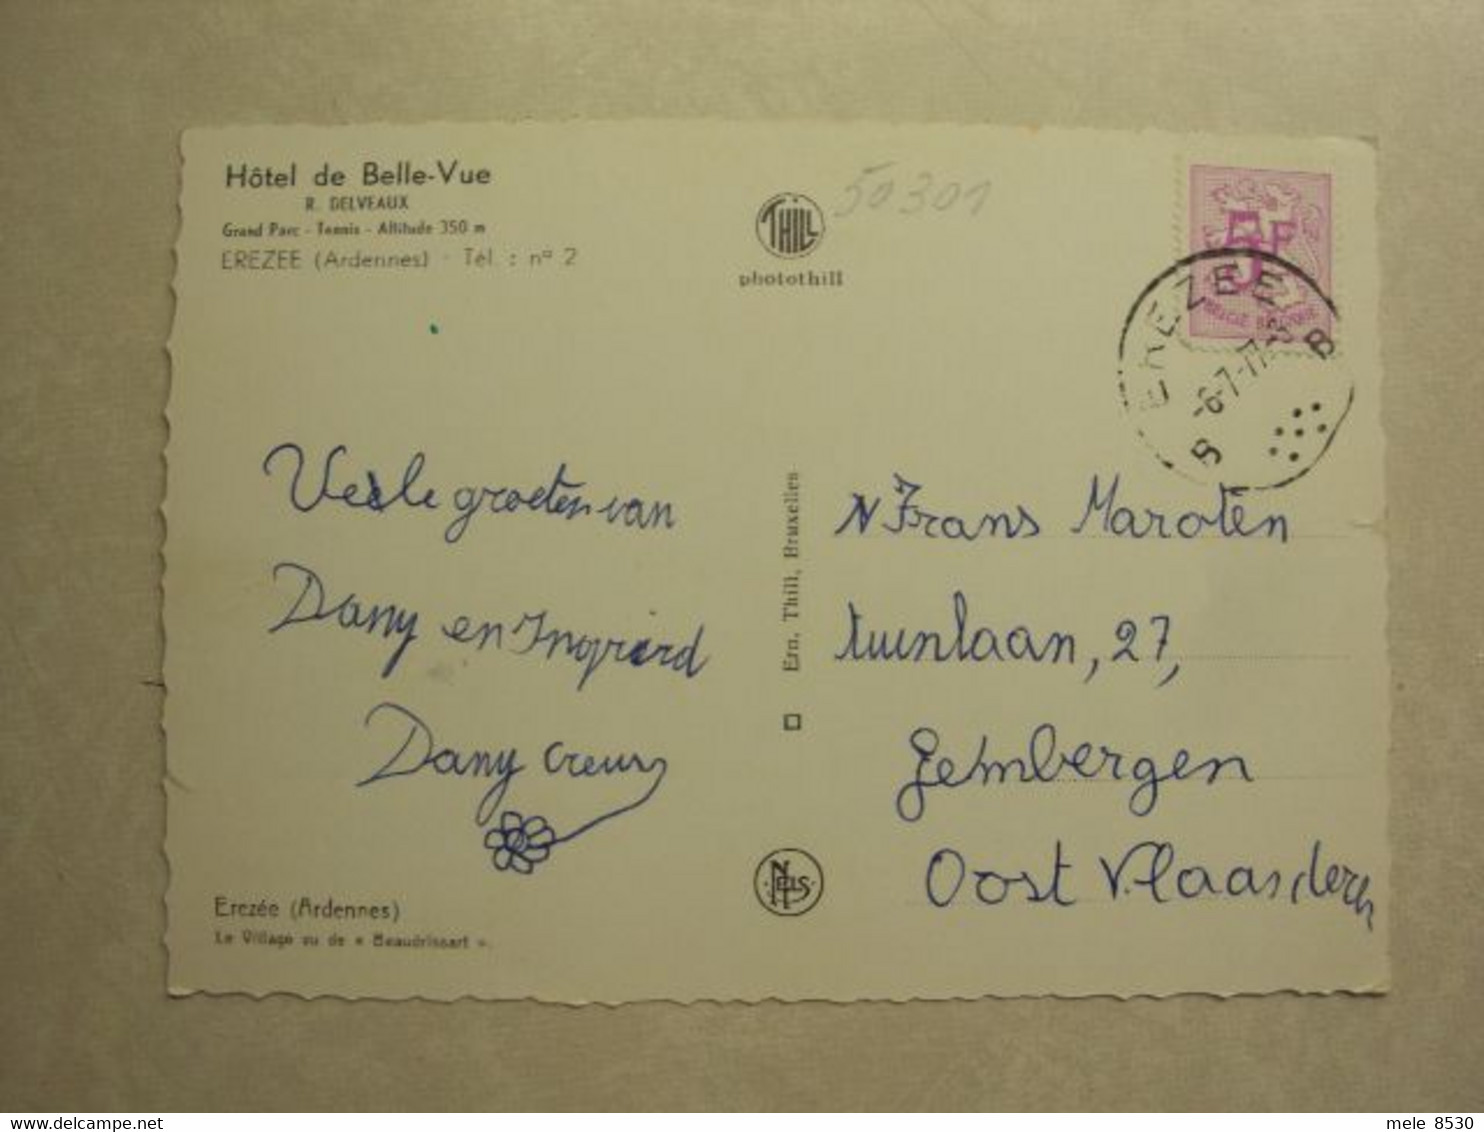 Hôtel de Belle-Vue
R. DELVEAUX
Grand Parc - Tennis - Altitude 350 m
EREZEE (Ardennes) - Tél. : nº 2
THILL
photothill
50301
5F
BELGIE BELGIQUE
EREZEE
-6-7-77-
B
Veèle groeten van
Dany en Ingrierd
Dany Creus
Ern. Thill, Bruxelles
N Frans Maroten
tuinlaan, 27,
Jembergen
Oost Vlaanderen
NELS
Erezée (Ardennes)
Le Village vu de « Beaudrissart ».
mele 8530